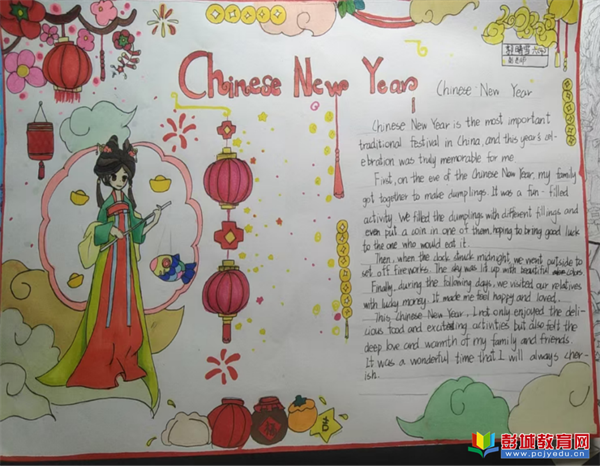 Chinese New Year
Chinese New Year
Chinese New Year is the most important
traditional festival in China, and this year's cel-
ebration was truly memorable for me.
First, on the eve of the Chinese New Year, my family
got together to make dumplings. It was a fun-filled
activity. We filled the dumplings with different fillings and
even put a coin in one of them, hoping to bring good luck
to the one who would eat it.
Then, when the clock struck midnight, we went outside to
set off fireworks. The sky was lit up with beautiful colors
Finally, during the following days, we visited our relatives
with lucky money. It made me feel happy and loved.
This Chinese New Year, I not only enjoyed the deli-
cious food and exciting activities but also felt the
deep love and warmth of my family and friends
It was a wonderful time that I will always cher-
ish.
福
彭城教育网
www.pcjyedu.cn